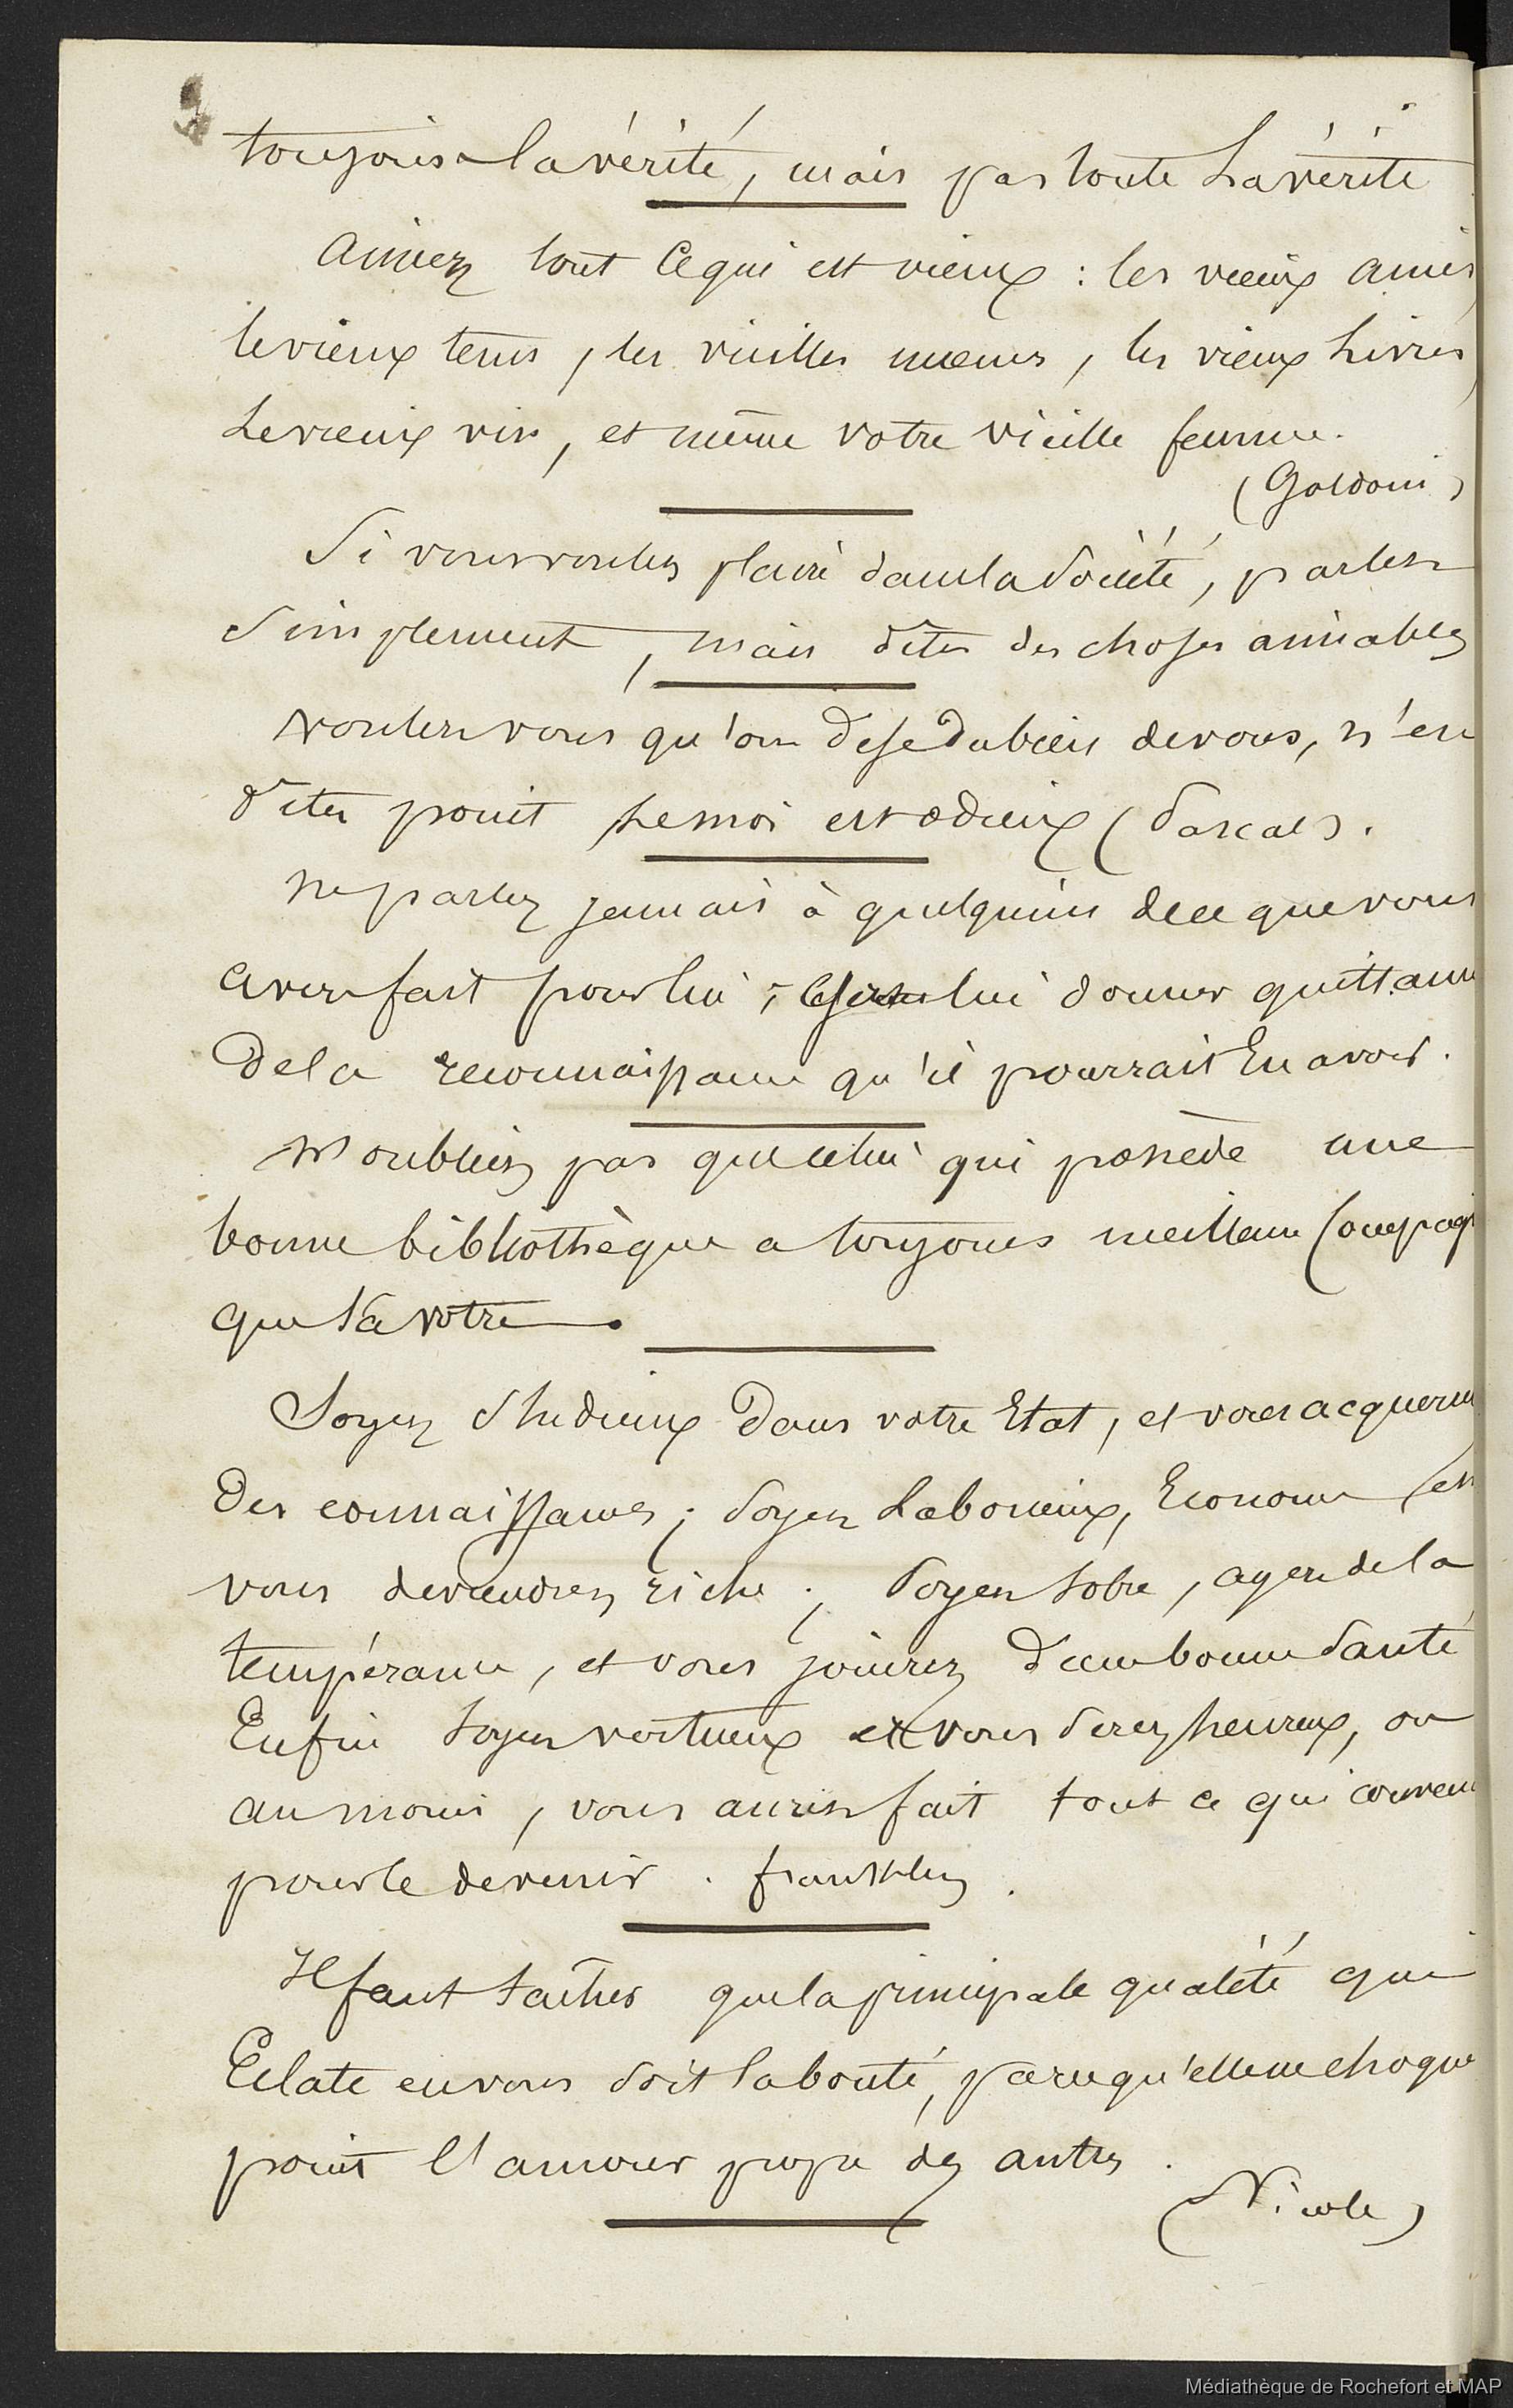 toujours la vérité, mais pas toute La vérité
Aimez tout ce qui est vieux : les vieux amis,
le vieux tems, les vieilles mœurs, les vieux Livres,
Le vieux vin, et même votre vieille femme.
(Goldoni)
Si vous voulez plaire dans la Société, parlez
Simplement, mais dîtes des choses aimables
voulez vous qu'on dise du bien de vous, n'en
dîtes point Le moi est odieux (Pascal).
Ne parlez jamais à quelqu'un de ce que vous
avez fait pour lui ; lui donner quittance
De la reconnaissance qu'il pourrait En avoir.
N'oubliez pas que celui qui possède une
bonne bibliothèque a toujours meilleure Compag
que la votre.
Soyez Studieux Dans votre Etat, et vous acquerrez
Des connaissances ; Soyez Laborieux, Econome et
vous deviendrez riche ; Soyez Sobre, ayez de la
tempérance, et vous jouirez D'une bonne Santé
Enfin Soyez vertueux et vous Serez heureux, ou
au moins, vous aurez fait tout ce qui convenu
pour le devenir. franklin.
Il faut tacher que la principale qualité qui
Eclate en vous Soit la bonté, parcequ'elle ne choque
point l'amour propre des autres.
(Nicole)
Médiathèque de Rochefort et MAP